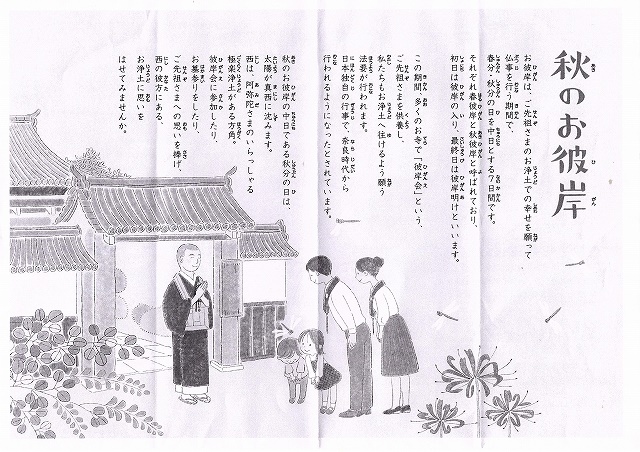 秋のお彼岸
お彼岸は、ご先祖さまのお浄土での幸せを願って
仏事を行う期間で、
春分・秋分の日を中日とする7日間です。
それぞれ春彼岸と秋彼岸と呼ばれており、
初日は彼岸の入り、最終日は彼岸明けといいます。
この期間、多くのお寺で「彼岸会」という、
ご先祖さまを供養し、
私たちもお浄土へ往けるよう願う
法要が行われます。
日本独自の行事で、奈良時代から
行われるようになったとされています。
秋のお彼岸の中日である秋分の日は、
太陽が真西に沈みます。
西は、阿弥陀さまのいらっしゃる
極楽浄土がある方角。
彼岸会に参加したり、
お墓参りをしたり、
ご先祖さまへの思いを捧げ、
西の彼方にある、
お浄土に思いを
はせてみませんか。